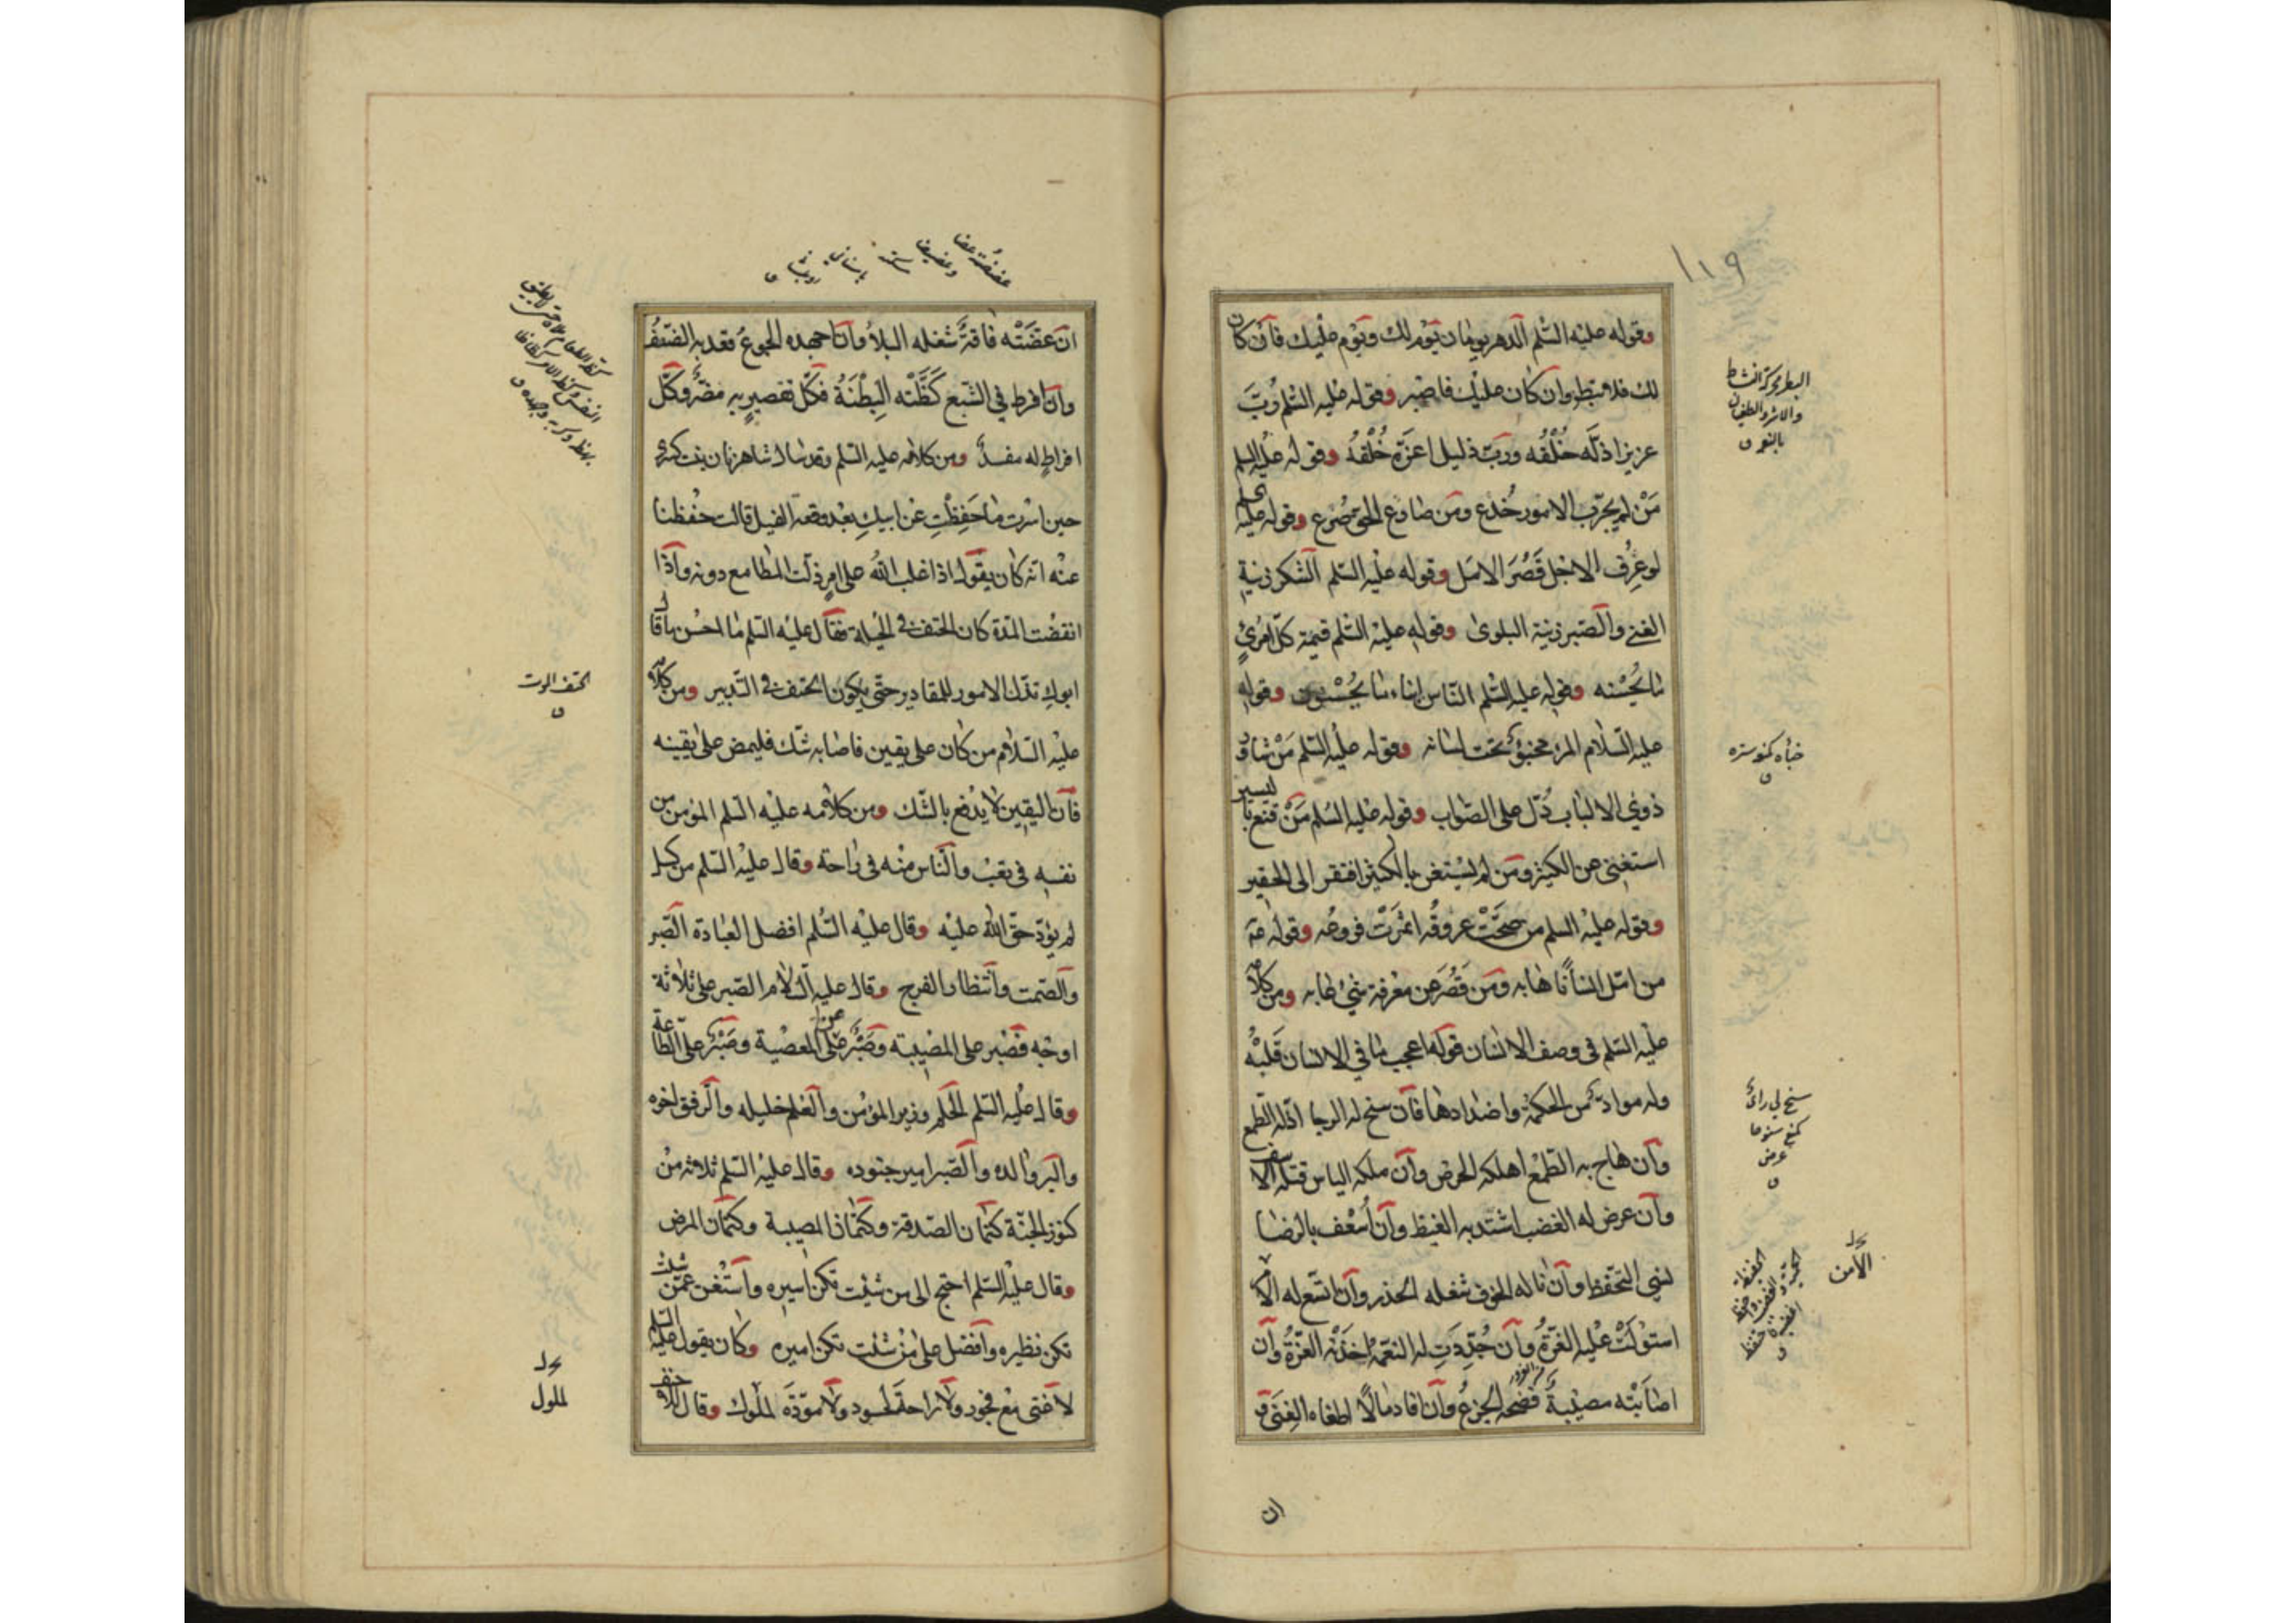 ١١٩
وقوله عليه السّلم الدهر يومان يوم لك ويوم عليك فان كان
لك فلا تبطر وان كان عليك فاصبر وقوله عليه السّلم ربّ
عزيز اذلّه خُلْقُه وربّ ذليل اعزّه خُلْقُه وقوله عليه السلم
مَنْ لم يجرّب الامور خُدع ومن صارع الحقّ صُرع وقوله عليه
لو عُرِف الاجل قَصُرَ الامل وقوله عليه السّلم الشكر زينة
الغنى والصّبر زينة البلوى وقوله عليه السّلم قيمة كلّ امرئٍ
ما يُحْسنه وقوله عليه السّلم الناس ابناء ما يُحْسنون وقوله
عليه السّلام المرء مخبوّ تحت لسانه وقوله عليه السّلم مَنْ شاور
ذوي الالباب دُلّ على الصّواب وقوله عليه السّلم مَنْ قنع باليسير
استغنى عن الكثير ومن لم يستغن بالكثير افتقر الى الحقير
وقوله عليه السلم من صحّتْ عروقُه اثمرَتْ فروعُه وقوله عه
من امّل انسانًا هابه ومَن قَصُرَ عن معرفة شيْ عابه ومن كلامه
عليه السّلم في وصف الانسان قوله اعجب ما في الانسان قَلبُه
وله موادّ من الحكمة واضدادها فان سنح له الرجا اذلّه الطّمع
وان هاج به الطّمع اهلكه الحرص وان ملكه الياس قتله الاسف
وان عرض له الغضب اشتد به الغيظ وان اُسْعف بالرضا
نسي التحفّظ وان ناله الخوف شغله الحذر وان اتسع له الا
استوْلَتْ عليه الغَرّةُ وان جُدّدَتِ له النعمة اخذَتْه العزّةُ وان
اصابَتْه مصيبةٌ فضحه الجزعُ وان افاد مالًا اطغاه الغِنَى و
البطر محركة النشاط
والاشر والطغيان
بالنعمة
خباه كمنع ستره
سنح لي راى
كمنع سنوحا
عرض
الامن
ان
ان عضّتْه فاقةٌ شغله البلاُ وان اجهده الجوعُ قعد به الضّعفُ
وان افرط في الشّبع كَظَّتْه البِطْنَةُ فكلّ تقصيرٍ به مضرٌّ وكلّ
افراطٍ له مفسدٌ ومن كلامه عليه السّلم وقد سال شاهزنان بنت كسرى
حين اسرت ما حَفِظْتِ عن ابيكِ بعْد وقعة الفيل قالت حفْظنا
عنْه انه كان يقول اذا غلب الله على امرٍ ذلّت المطامع دونه واذا
انقضت المدّة كان الحتف في الحيلة فقال عليه السّلم ما احسن ما قال
ابوكِ تذلّ الامور للمقادير حتّى يكون الحتف في التّدبير ومن كلامه
عليه السّلام من كان على يقين فاصابه شك فليمض على يقينه
فان اليقين لا يُدْفع بالشّك ومن كلامه عليه السّلم المؤمن من
نفسه في تعب والنّاس منْه في راحة وقال عليه السّلم من كسل
لم يؤدّ حقّ الله عليه وقال عليه السّلم افضل العبادة الصّبر
والصّمت وانتظار الفرج وقال عليه السّلام الصّبر على ثلاثة
اوجه فصبر على المصيبة وصَبْر على عن المعصية وصَبْر على الطّاعة
وقال عليه السّلم الحلم وزير المؤمن والعلم خليله والرّفق اخوه
والبرّ والده والصّبر امير جنوده وقال عليه السّلم ثلاثة من
كنوز الجنّة كتمان الصّدقة وكتمان المصيبة وكتمان المرض
وقال عليه السّلم احتج الى من شئت تكن اسيره واستْغن عمّن شئت
تكن نظيره وافضل على منْ شئت تكن اميره وكان يقول عليه السّلم
لا غنى مع فجور ولا راحة لحسود ولا مودّة لملوك وقال للاحنف
الحتف الموت
لملول